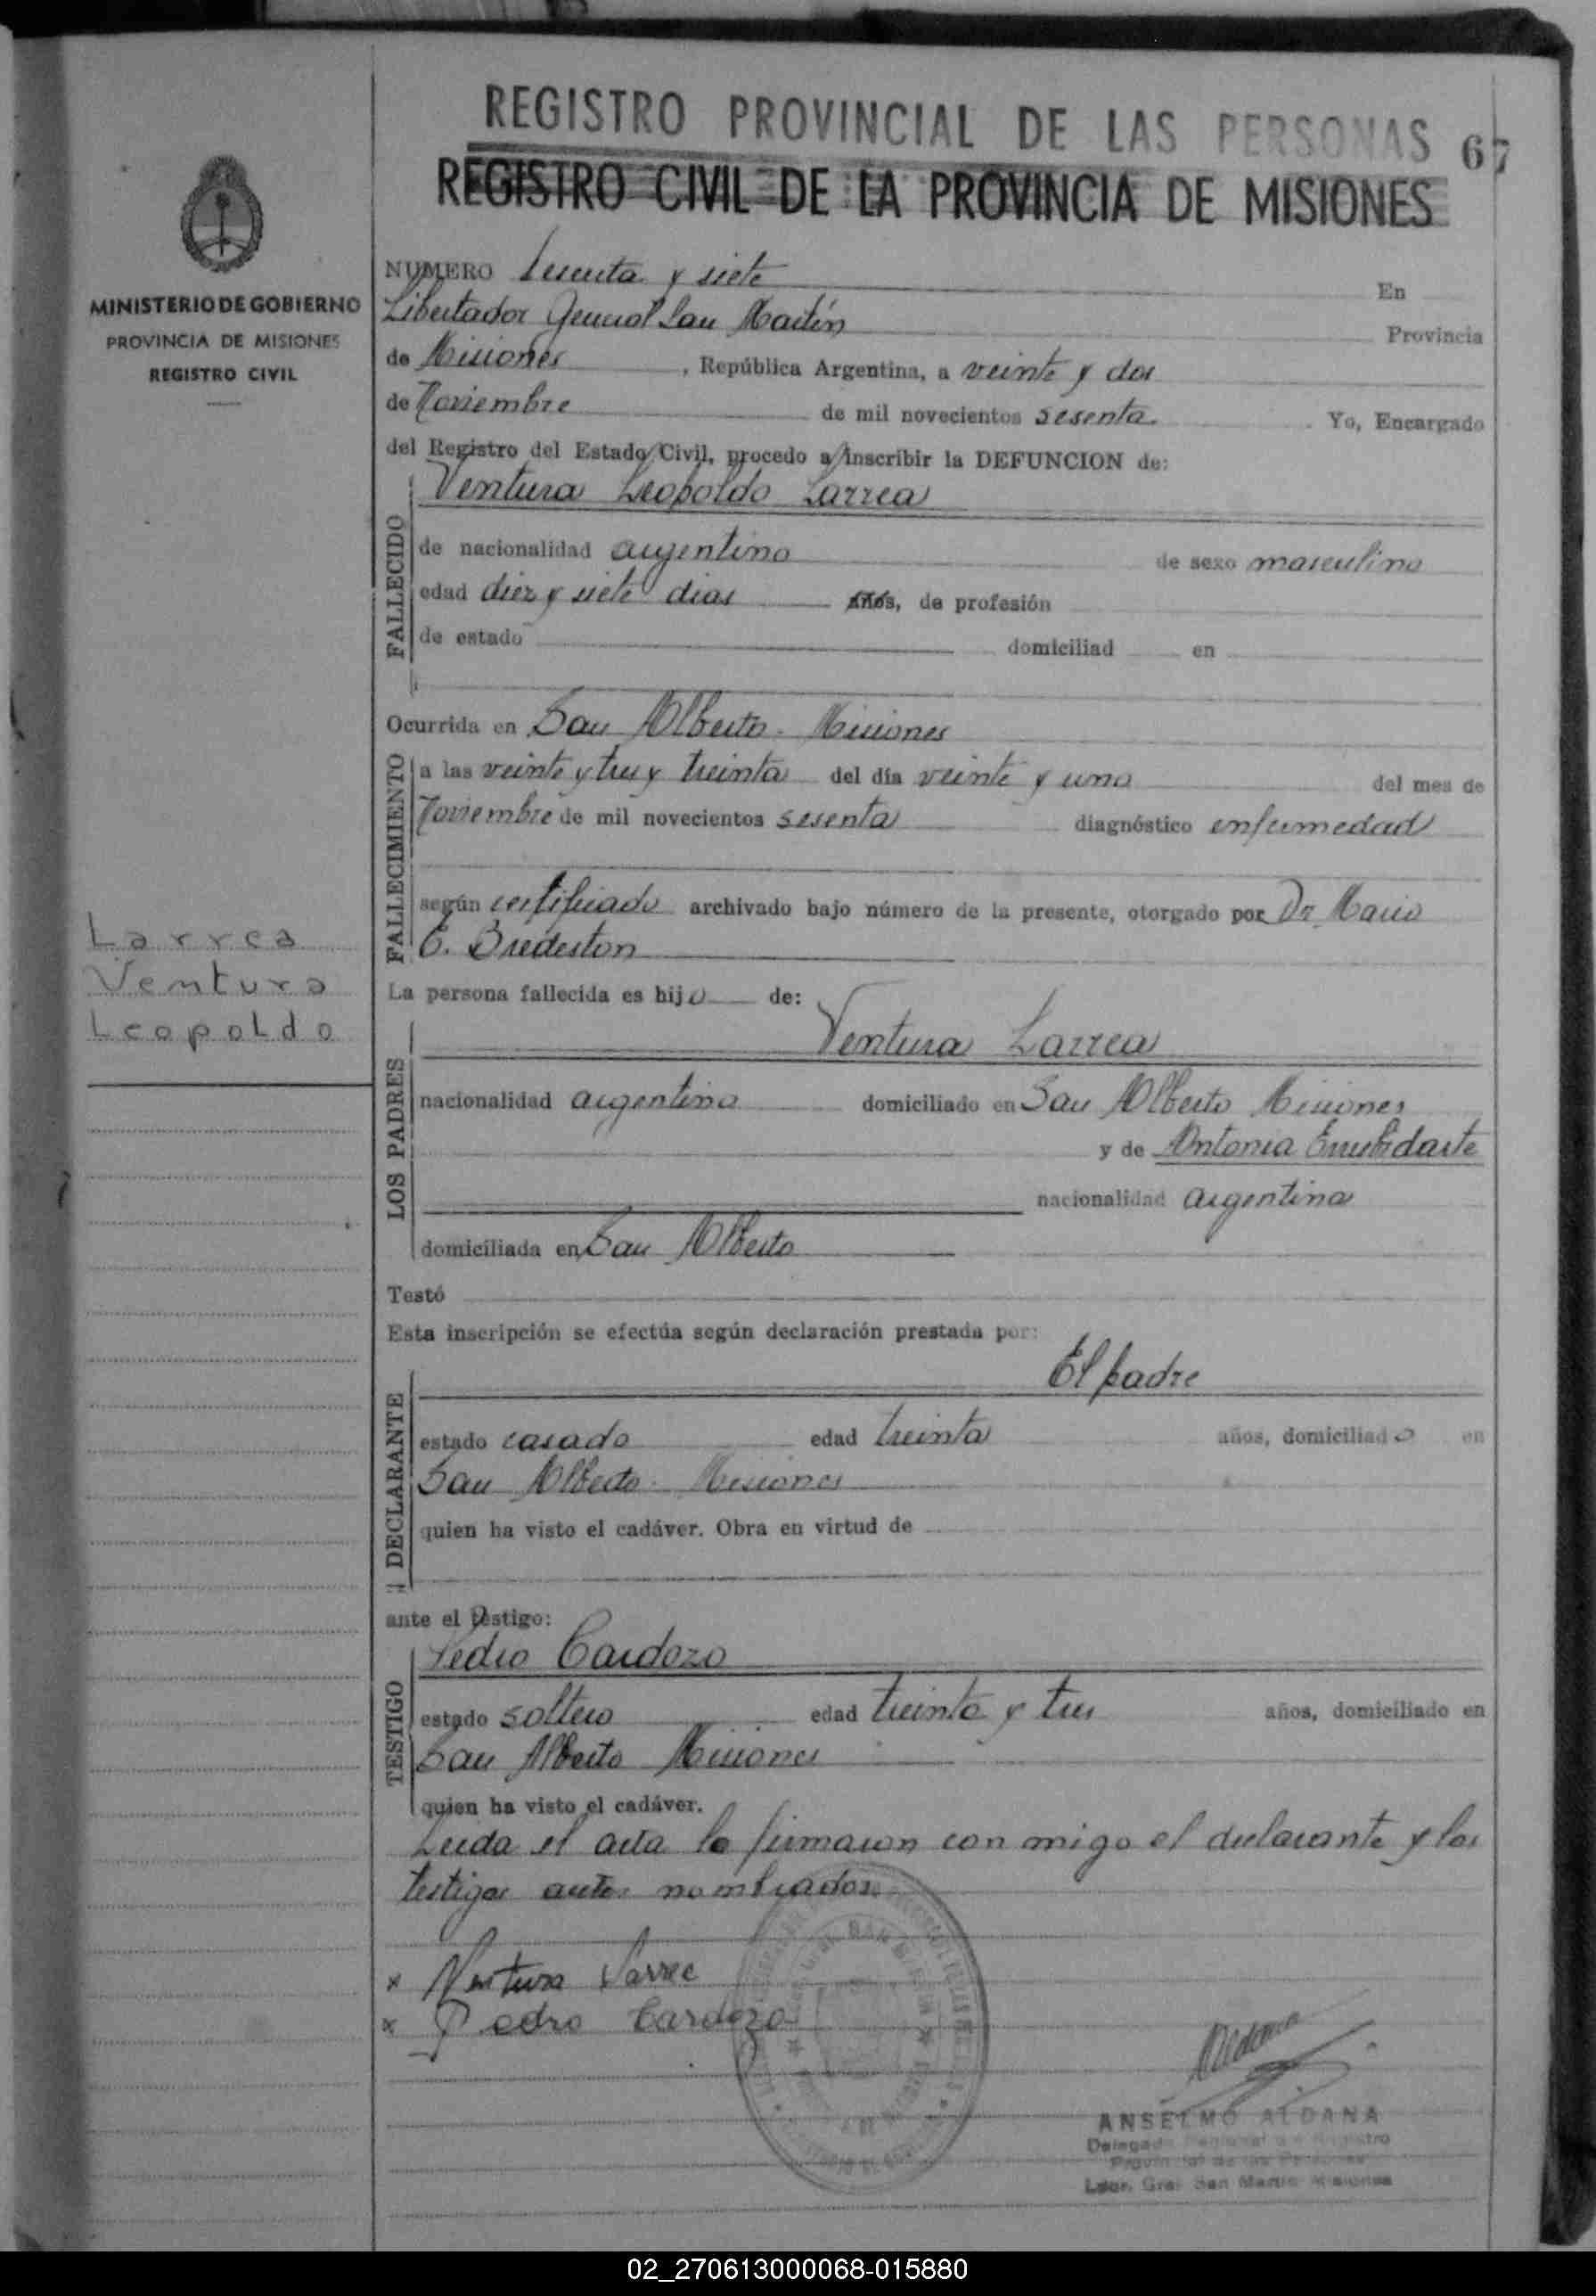 REGISTRO PROVINCIAL DE LAS PERSONAS 67
REGISTRO CIVIL DE LA PROVINCIA DE MISIONES
MINISTERIO DE GOBIERNO
PROVINCIA DE MISIONES
REGISTRO CIVIL
NUMERO Sesenta y siete En
Libertador General San Martín Provincia
de Misiones, República Argentina, a veinte y dos
de Noviembre de mil novecientos sesenta. Yo, Encargado
del Registro del Estado Civil, procedo a inscribir la DEFUNCION de:
FALLECIDO
Ventura Leopoldo Larrea
de nacionalidad argentino de sexo masculino
edad diez y siete dias años, de profesión
de estado domiciliad en
Ocurrida en San Alberto - Misiones
FALLECIMIENTO
a las veinte y tres y treinta del día veinte y uno del mes de
Noviembre de mil novecientos sesenta diagnóstico enfermedad
según certificado archivado bajo número de la presente, otorgado por Dr Mario
E. Bredeston
Larrea
Ventura
Leopoldo
La persona fallecida es hijo de:
LOS PADRES
Ventura Larrea
nacionalidad argentino domiciliado en San Alberto Misiones
y de Antonia
nacionalidad argentina
domiciliada en San Alberto
Testó
Esta inscripción se efectúa según declaración prestada por:
DECLARANTE
El padre
estado casado edad treinta años, domiciliado en
San Alberto - Misiones
quien ha visto el cadáver. Obra en virtud de
ante el testigo:
TESTIGO
Pedro Cardozo
estado soltero edad treinta y tres años, domiciliado en
San Alberto Misiones
quien ha visto el cadáver.
Leida el acta la firmaron con migo el declarante y los
testigos antes nombrados.
x Ventura Larrea
x Pedro Cardozo
Aldana
ANSELMO ALDANA
Delegado Regional del Registro
Provincial de las Personas
Ldor. Gral San Martín Misiones
02_270613000068-015880